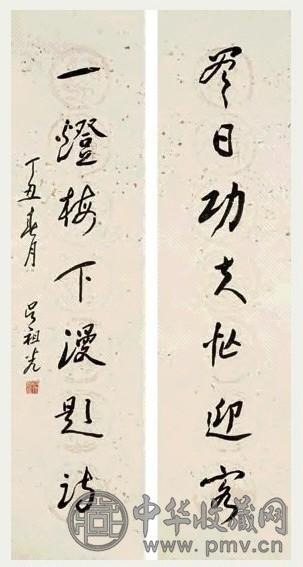 冬日功夫忙迎客
一燈梅下漫題詩
丁丑春月 吳祖光
中华收藏网
www.pmv.cn